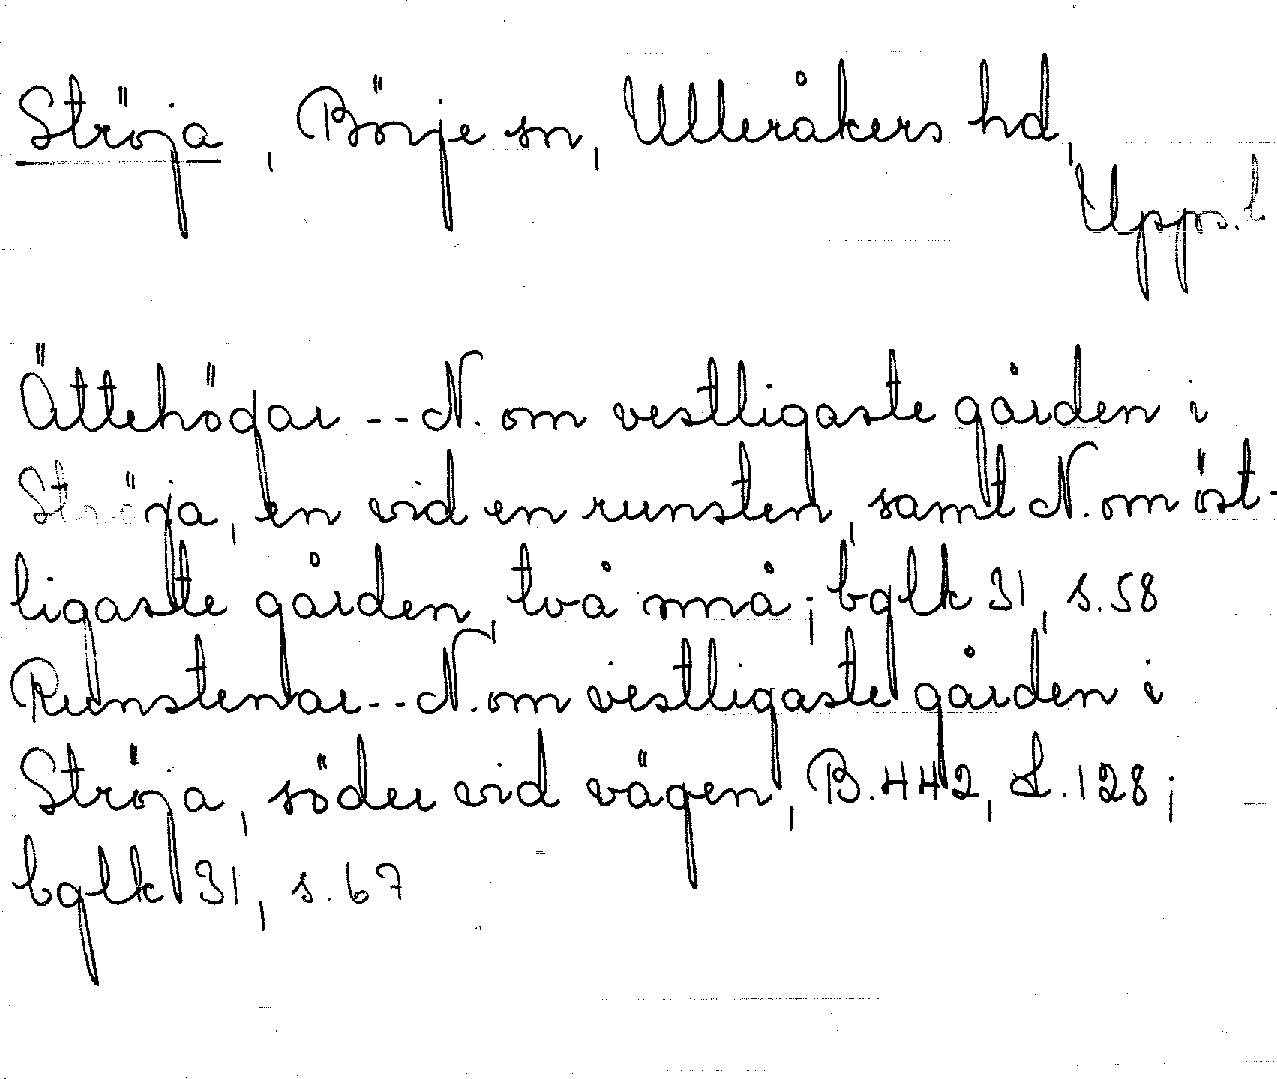 Ströja, Börje sn, Ulleråkers hd,
Upps. l
Ättehögar -- N. om vestligaste gården i
Ströja, en vid en runsten, samt N. om öst-
ligaste gården, två små; bglk 31, s.58
Runstenar -- N. om vestligaste gården i
Ströja, söder vid vägen, B.442, L.128;
bglk 31, s.67